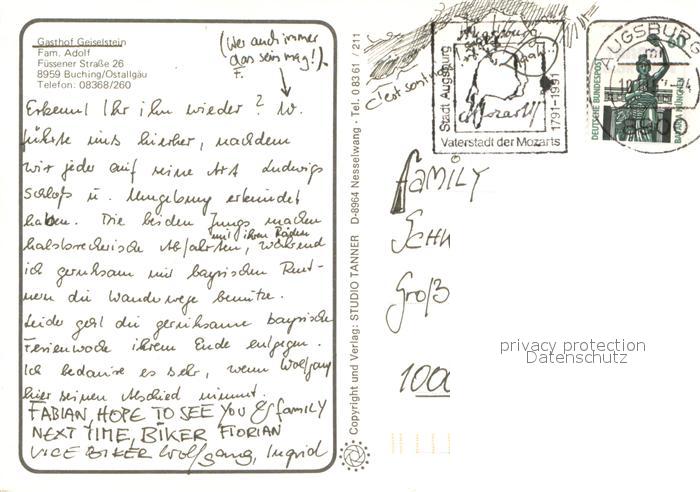 Gasthof Geiselstein
Fam. Adolf
Füssener Straße 26
8959 Buching/Ostallgäu
Telefon: 08368/260
(Wer auch immer
das sein mag!)
F.
Erkennt Ihr ihn wieder? W.
führte uns hierher, nachdem
wir jeder auf seine Art Ludwigs
Schloß u. Umgebung erkundet
haben. Die beiden Jungs machen
mit ihren Rädern
halsbrecherische Abfahrten, während
ich geruhsam mit bayrischen Rent-
nern die Wanderwege benutze.
Leider geht die geruhsame bayrische
Ferienwoche ihrem Ende entgegen.
Ich bedaure es sehr, wenn Wolfgang
hier seinen Abschied nimmt.
FABIAN, HOPE TO SEE YOU & FAMILY
NEXT TIME, BIKER FLORIAN
VICE BIKER Wolfgang, Ingrid
Copyright und Verlag: STUDIO TANNER D-8964 Nesselwang · Tel. 0 83 61 / 211
Stadt Augsburg
Mozart
1791-1991
Vaterstadt der Mozarts
AUGSBURG
8900
60
DEUTSCHE BUNDESPOST
BAVARIA MÜNCHEN
FAMILY
SCHU
Groß
1000
privacy protection
Datenschutz